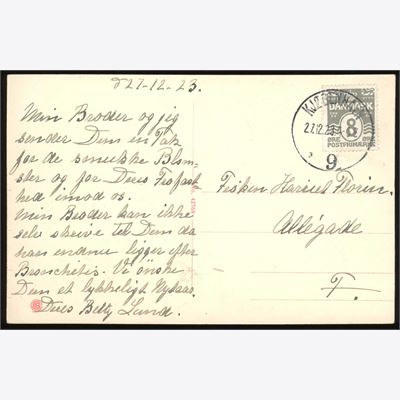 d 27-12-23.
Min Broder og jeg
sender Dem en Tak
for de smukke Blom-
ster og for Deres
hed imod os.
Min Broder kan ikke
selv skrive til Dem da
han endnu ligger efter
Bronchitis. Vi ønske
Dem et lykkeligt Nytaar.
Deres Betty Lund.
KJØBENHAVN
27.12.23
9.
DANMARK
8
ØRE ØRE
POSTFRIMÆRKE
Frøken Harriet Florin.
Allégade
F.